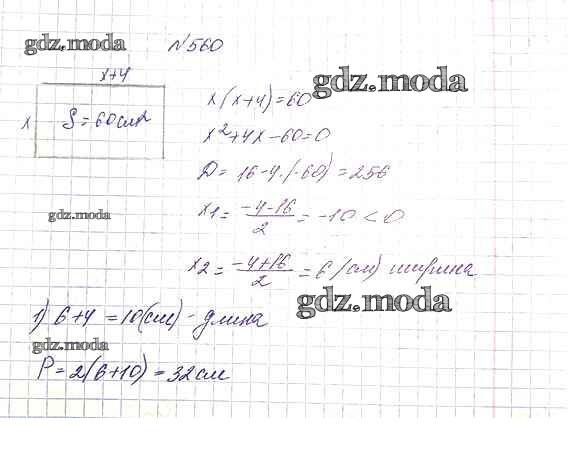 gdz.moda
№560
x+4
gdz.moda
x
S = 60 см²
x(x+4)=60
x²+4x-60=0
D= 16-4·(-60) = 256
gdz.moda
x1 = (-4-16)/2 = -10 < 0
x2 = (-4+16)/2 = 6 (см) ширина
gdz.moda
1) 6+4 = 10(см) - длина
gdz.moda
P= 2(6+10) = 32 см